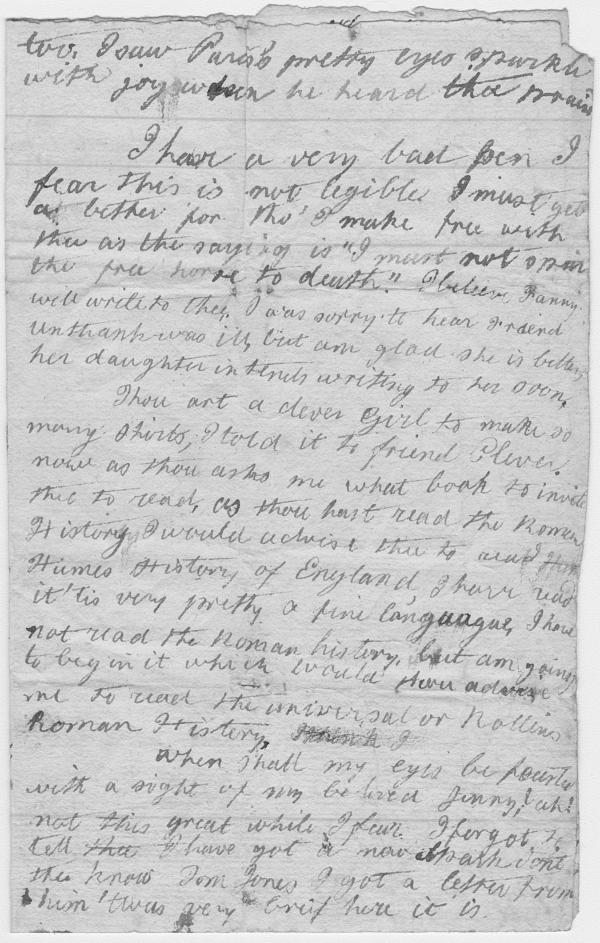 too, I saw Paris's pretty eyes sparkle
with joy when he heard thee
I have a very bad pen I
fear this is not legible I must get
a better for tho' I make free with
thee as the saying is "I must not spur
the free horse to death." I beleive Fanny
will write to thee. I was sorry to hear Friend
Unthank was ill, but am glad she is better,
her daughter intends writing to her soon,
Thou art a clever Girl to make so
many shirts, I told it to friend Plever.
now as thou asks me what book to invite
thee to read, as thou hast read the Roman
History, I would advise thee to read
Humes History of England, I have read
it 'tis very pretty a fine languague, I have
not read the Roman history, but am going
to begin it which would thou advise
me to read the universal or Rollins
Roman History,
when shall my eyes be feasted
with a sight of my beloved Jenny! ah!
not this great while I fear. I forgot to
tell thee I have got a new don't
thee know Tom Jones I got a letter from
him 'twas very brief here it is.